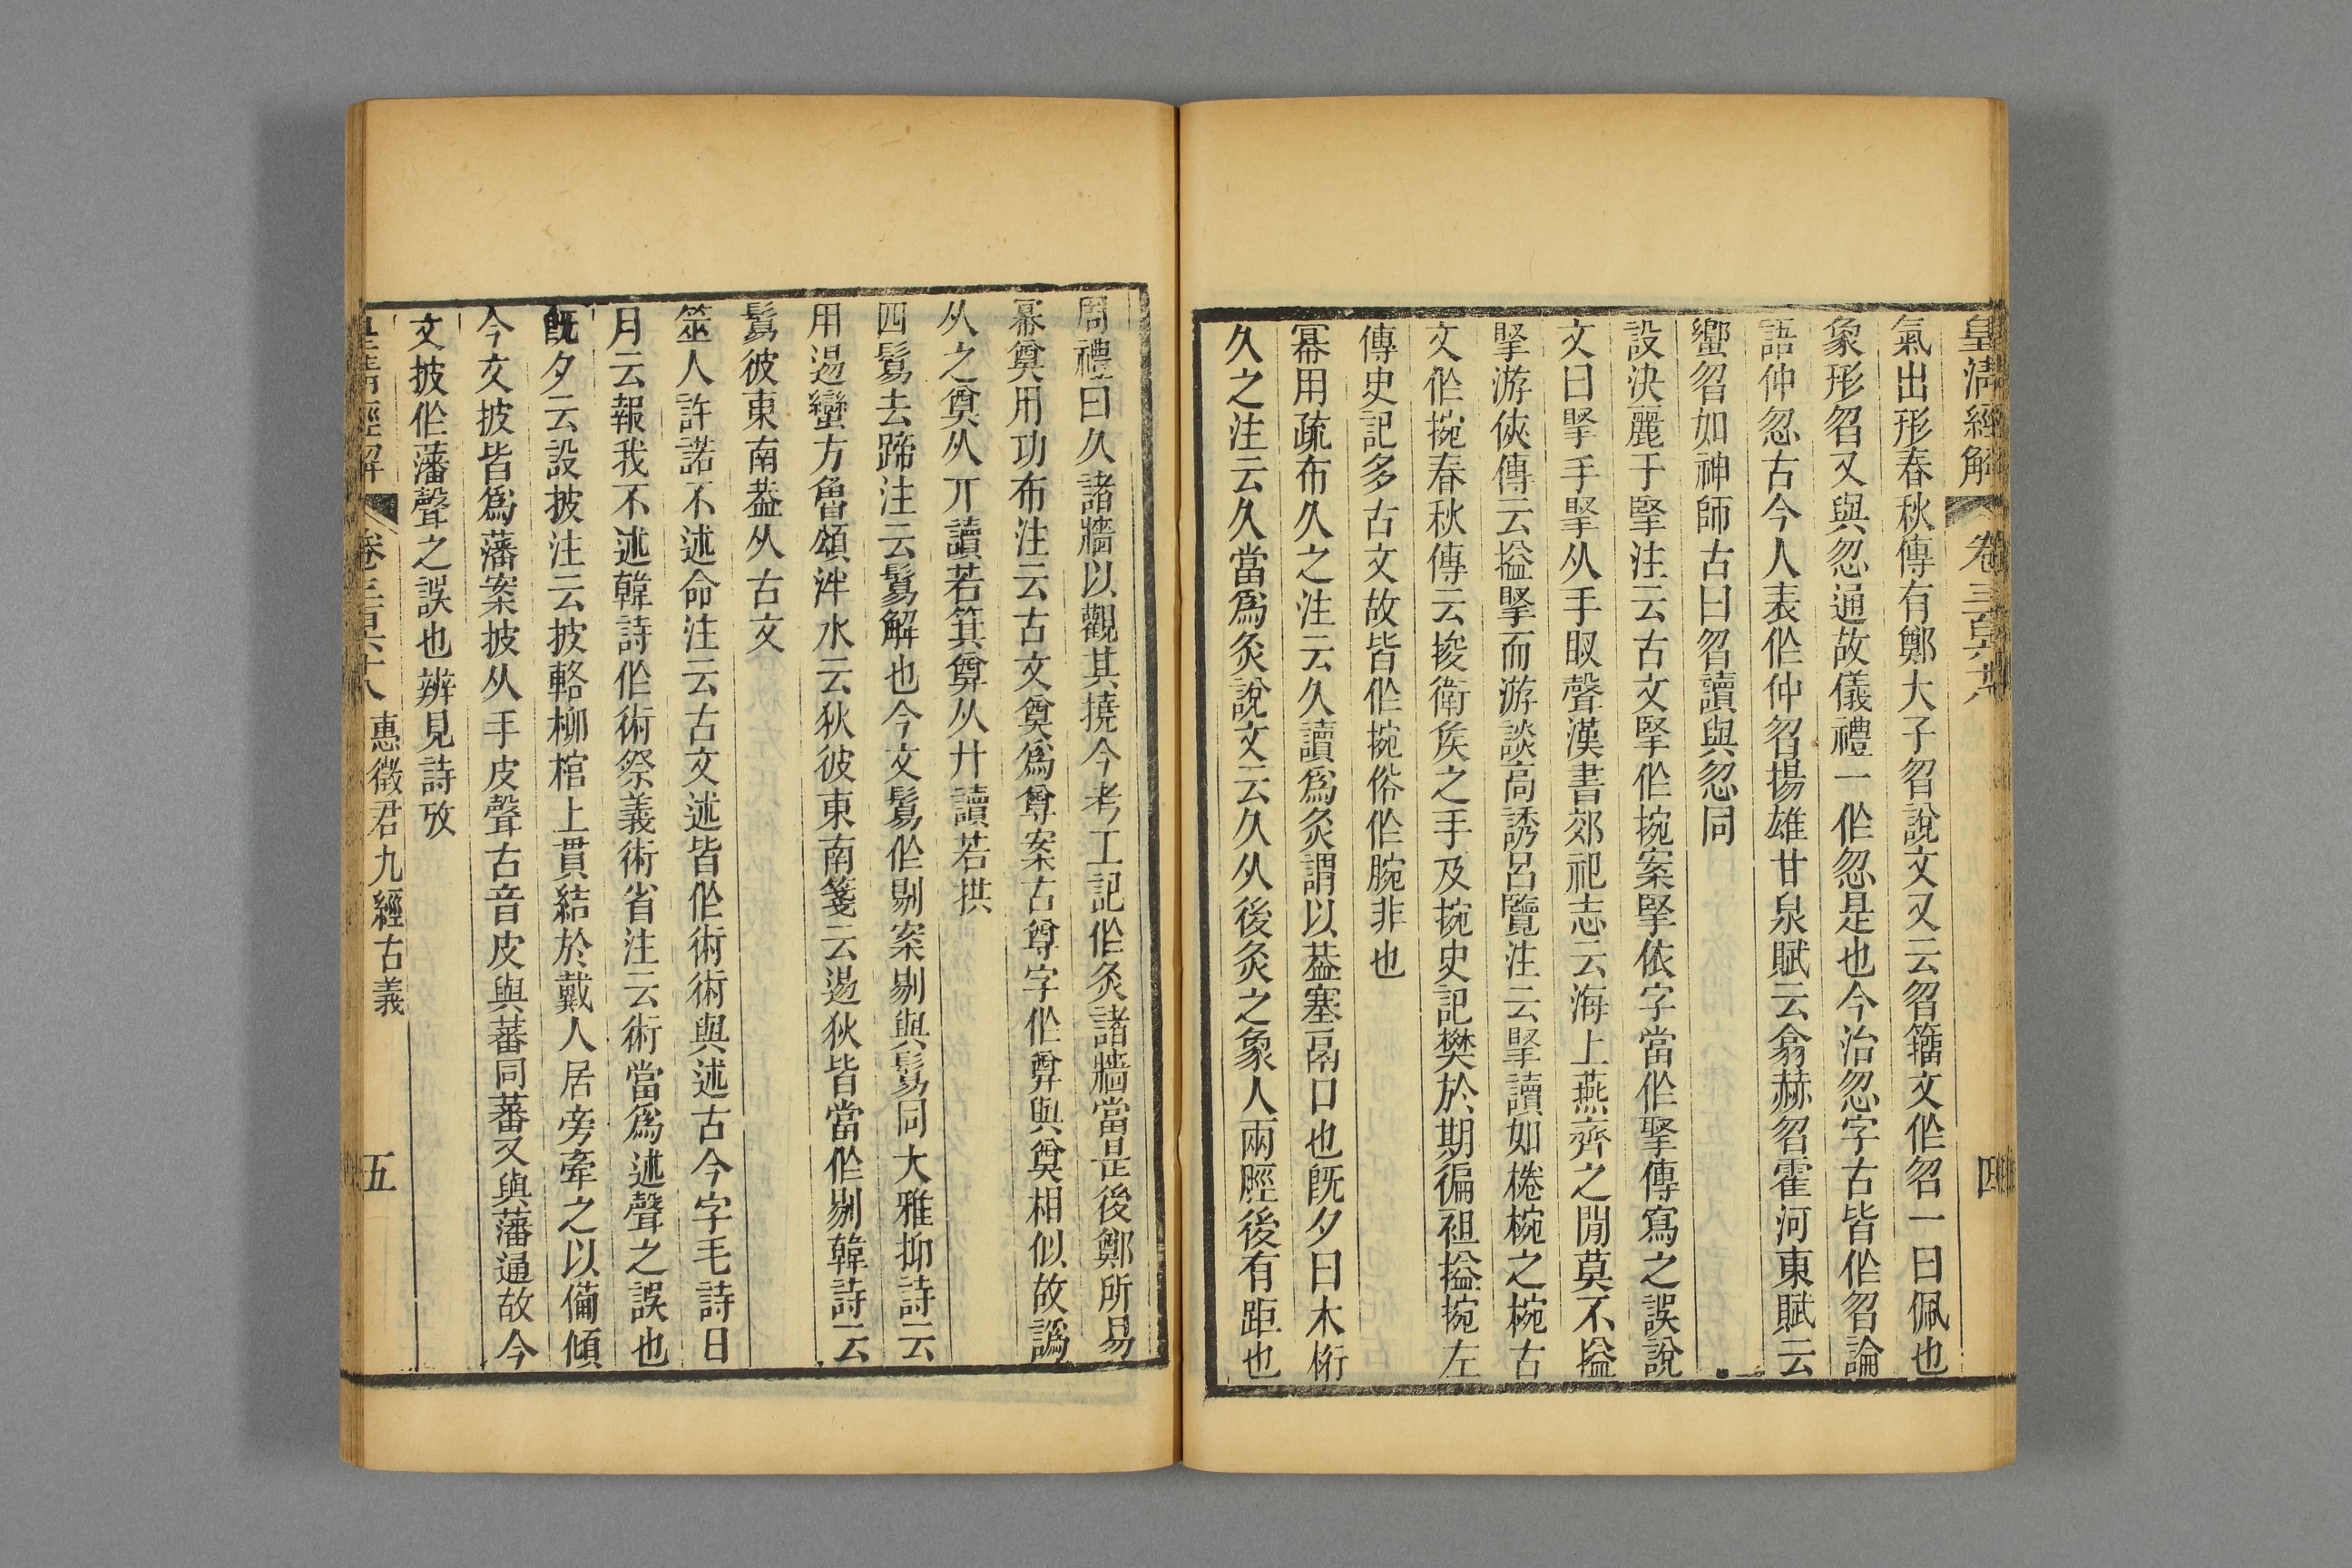 皇清經解 卷三百六十八 四
氣出形春秋傳有鄭大子曶說文又云曶籀文作曶一曰佩也
象形曶又與忽通故儀禮一作忽是也今治忽字古皆作曶論
語仲忽古今人表作仲曶揚雄甘泉賦云翕赫曶霍河東賦云
蠁曶如神師古曰曶讀與忽同
設決麗于掔注云古文掔作捥案掔依字當作掔傳寫之誤說
文曰掔手掔从手䀠聲漢書郊祀志云海上燕齊之閒莫不搤
掔游俠傳云搤掔而游談高誘呂覽注云掔讀如棬椀之椀古
文作捥春秋傳云捘衛矦之手及捥史記樊於期徧袒搤捥左
傳史記多古文故皆作捥俗作腕非也
冪用疏布久之注云久讀爲灸謂以葢塞鬲口也旣夕曰木桁
久之注云久當爲灸說文云久从後灸之象人兩脛後有距也
周禮曰久諸牆以觀其撓今考工記作灸諸牆當是後鄭所易
冪奠用功布注云古文奠爲尊案古尊字作尊與奠相似故譌
从之奠从丌讀若箕尊从廾讀若拱
四鬄去蹄注云鬄解也今文鬄作剔案剔與鬄同大雅抑詩云
用逷蠻方魯頌泮水云狄彼東南箋云逷狄皆當作剔韓詩云
鬄彼東南葢从古文
筮人許諾不述命注云古文述皆作術術與述古今字毛詩日
月云報我不述韓詩作術祭義術省注云術當爲述聲之誤也
旣夕云設披注云披輅柳棺上貫結於戴人居旁牽之以備傾
今文披皆爲藩案披从手皮聲古音皮與蕃同蕃又與藩通故今
文披作藩聲之誤也辨見詩攷
皇清經解 卷三百六十八 惠徵君九經古義 五